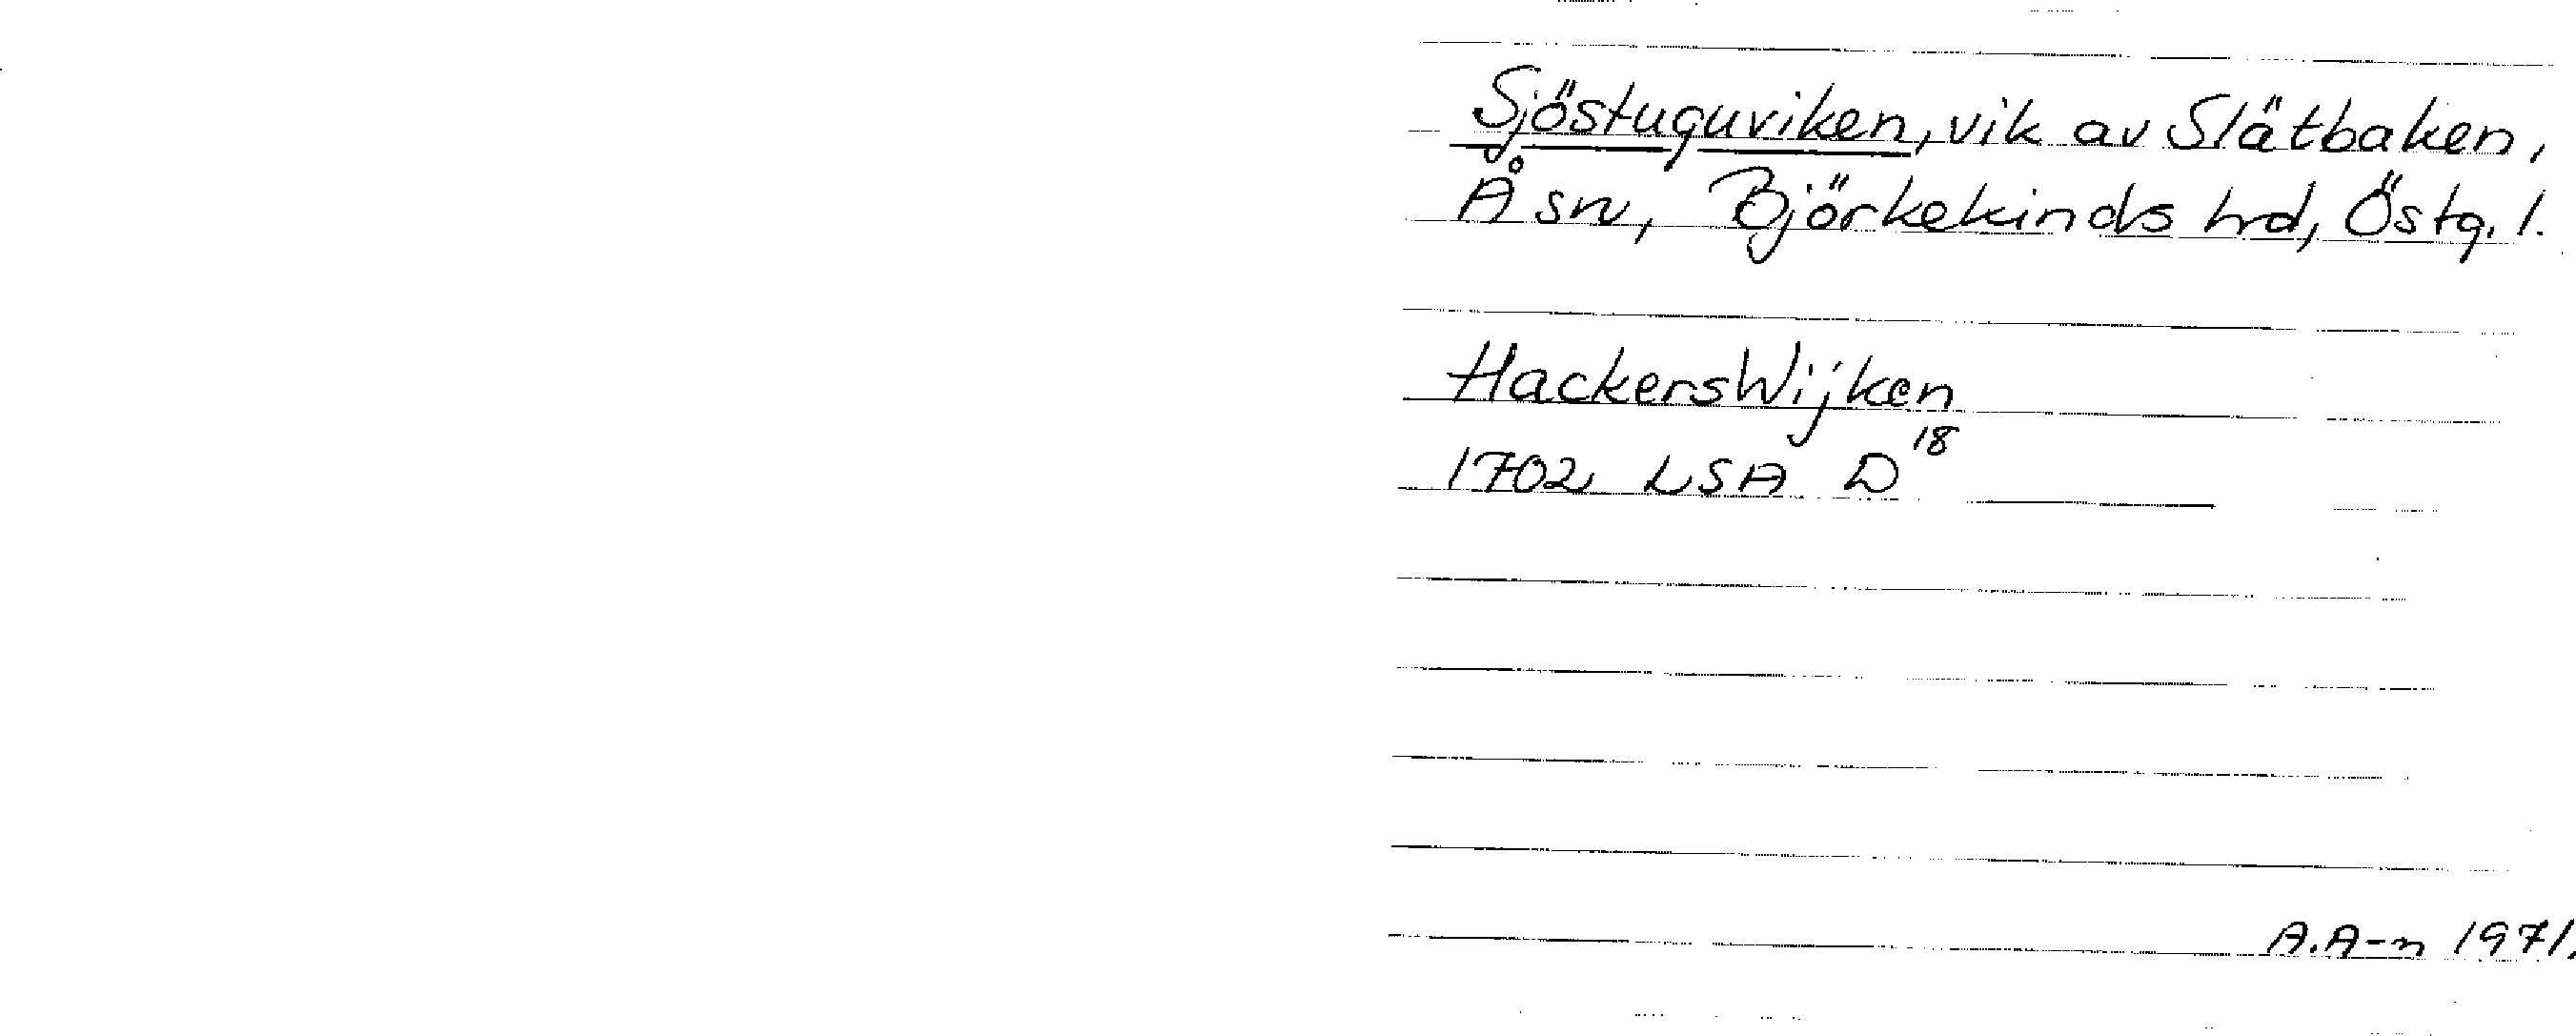 Sjöstuguviken, vik av Slätbaken,
Å sn, Björkekinds hd, Östg. l.
HackersWijken
1702 LSA D 18
A.A-n 1971.